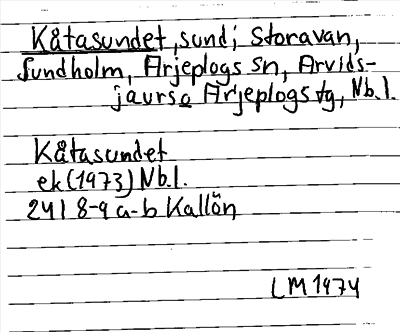 Kåtasundet, sund i Storavan,
Sundholm, Arjeplogs sn, Arvids-
jaurs o Arjeplogs tg, Nb.l.
Kåtasundet
ek (1973) Nb.l.
24I 8-9 a-b Kallön
LM 1974